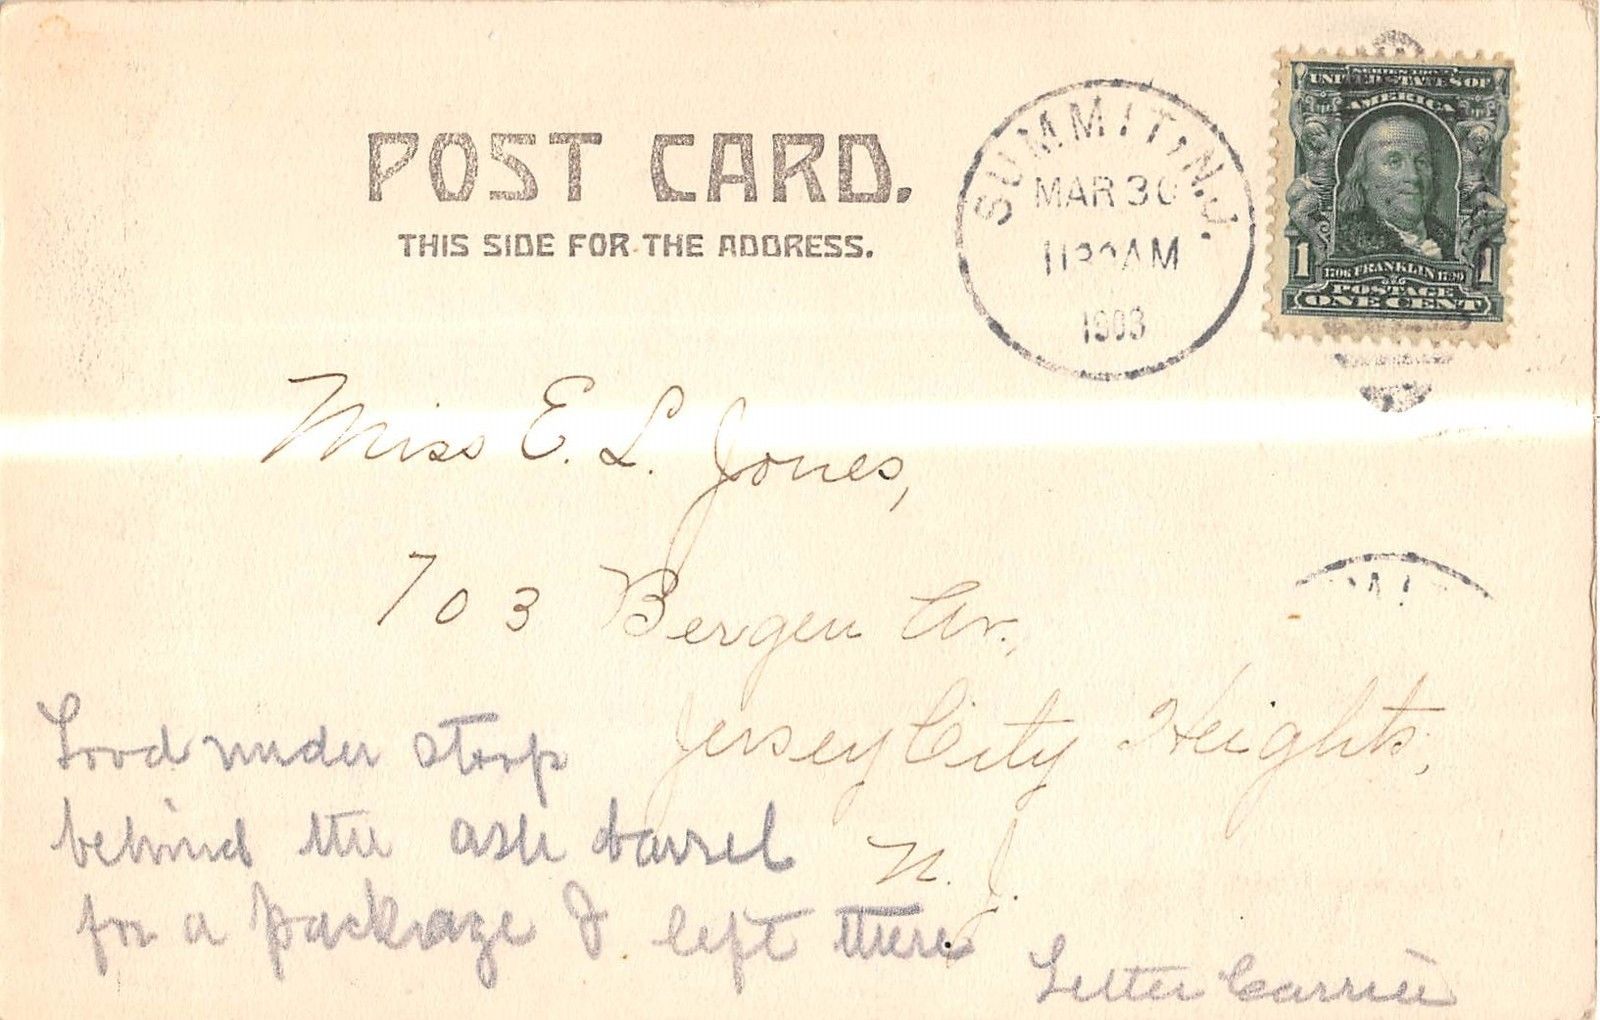 POST CARD.
THIS SIDE FOR THE ADDRESS.
SUMMIT, N.J.
MAR 30
1130AM
1903
SERIES 1902
UNITED STATES OF
AMERICA
1 1706 FRANKLIN 1790 1
POSTAGE
ONE CENT
Miss E. L. Jones,
703 Bergen Av.,
Jersey City Heights,
N. J.
Look under stoop
behind the ash barrel
for a package I left there
Letter Carrier